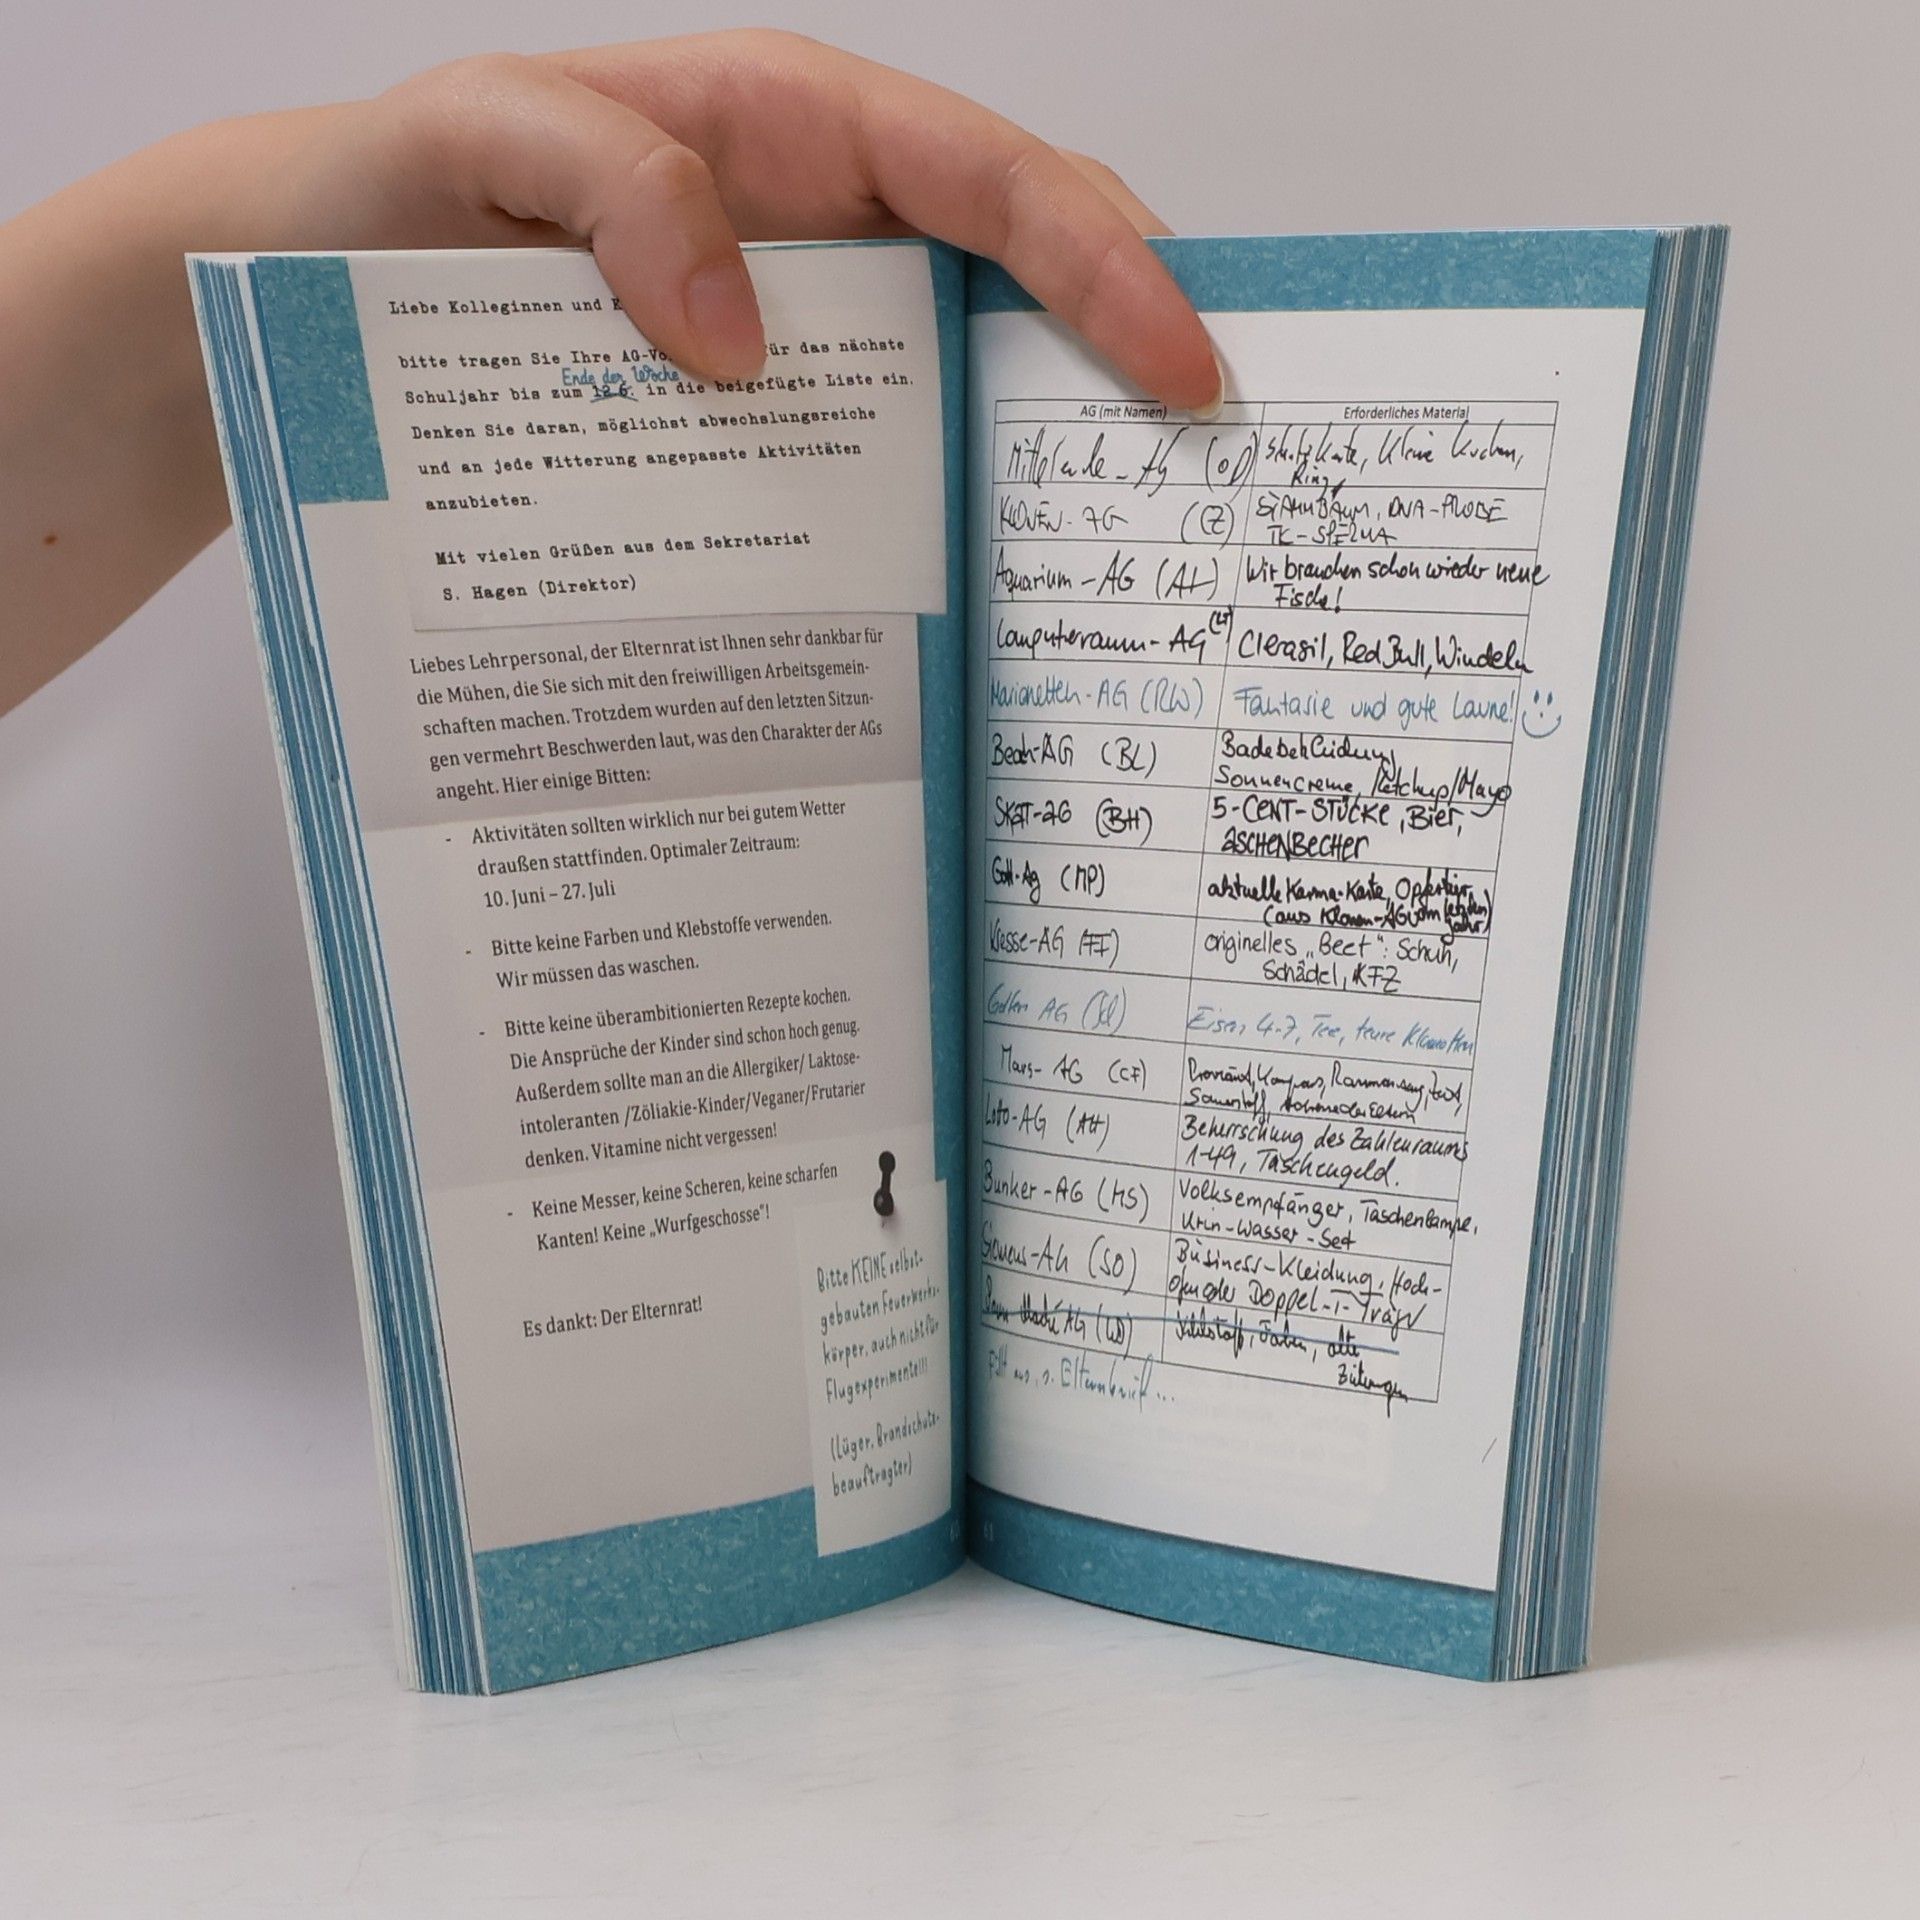 Liebe Kolleginnen und K
bitte tragen Sie Ihre AG-Vo für das nächste
Ende der Woche
Schuljahr bis zum 12.6. in die beigefügte Liste ein.
Denken Sie daran, möglichst abwechslungsreiche
und an jede Witterung angepasste Aktivitäten
anzubieten.
Mit vielen Grüßen aus dem Sekretariat
S. Hagen (Direktor)
Liebes Lehrpersonal, der Elternrat ist Ihnen sehr dankbar für
die Mühen, die Sie sich mit den freiwilligen Arbeitsgemein-
schaften machen. Trotzdem wurden auf den letzten Sitzun-
gen vermehrt Beschwerden laut, was den Charakter der AGs
angeht. Hier einige Bitten:
- Aktivitäten sollten wirklich nur bei gutem Wetter
draußen stattfinden. Optimaler Zeitraum:
10. Juni – 27. Juli
- Bitte keine Farben und Klebstoffe verwenden.
Wir müssen das waschen.
- Bitte keine überambitionierten Rezepte kochen.
Die Ansprüche der Kinder sind schon hoch genug.
Außerdem sollte man an die Allergiker/ Laktose-
intoleranten /Zöliakie-Kinder/Veganer/Frutarier
denken. Vitamine nicht vergessen!
- Keine Messer, keine Scheren, keine scharfen
Kanten! Keine „Wurfgeschosse"!
Es dankt: Der Elternrat!
Bitte KEINE selbst-
gebauten Feuerwerks-
körper, auch nicht für
Flugexperimente!!!
(Lüger, Brandschutz-
beauftragter)
61
AG (mit Namen) Erforderliches Material
Mittelerde-AG (OD) Kleine Kuchen,
Ring
KLONEN-AG (CZ) STAMMBAUM, DNA-PROBE
TK-SPERMA
Aquarium-AG (AL) Wir brauchen schon wieder neue
Fische!
Computerraum-AG Clerasil, Red Bull, Windeln
Marionetten-AG (RW) Fantasie und gute Laune!
Beach-AG (BL) Badebekleidung
Sonnencreme, Ketchup/Mayo
SKAT-AG (BH) 5-CENT-STÜCKE, Bier,
ASCHENBECHER
Gott-Ag (MP) aktuelle Karma-Karte, Opfertier,
(aus Klonen-AG vom letzten
Jahr)
Kresse-AG (FF) originelles „Beet": Schuh,
Schädel, KFZ
Golfen AG Eisen 4-7, Tee, teure Klamotten
Mars-AG (CF) Proviant, Kompass, Raumanzug,
Sauerstoff,
Lotto-AG (AH) Beherrschung des Zahlenraums
1-49, Taschengeld.
Bunker-AG (MS) Volksempfänger, Taschenlampe,
Urin-Wasser-Set
Siemens-AG (SO) Business-Kleidung, Hoch-
ofen oder Doppel-T-Träger
Maché AG Klebstoff, Farben, alte
Zeitungen
Fällt aus, s. Elternbrief...